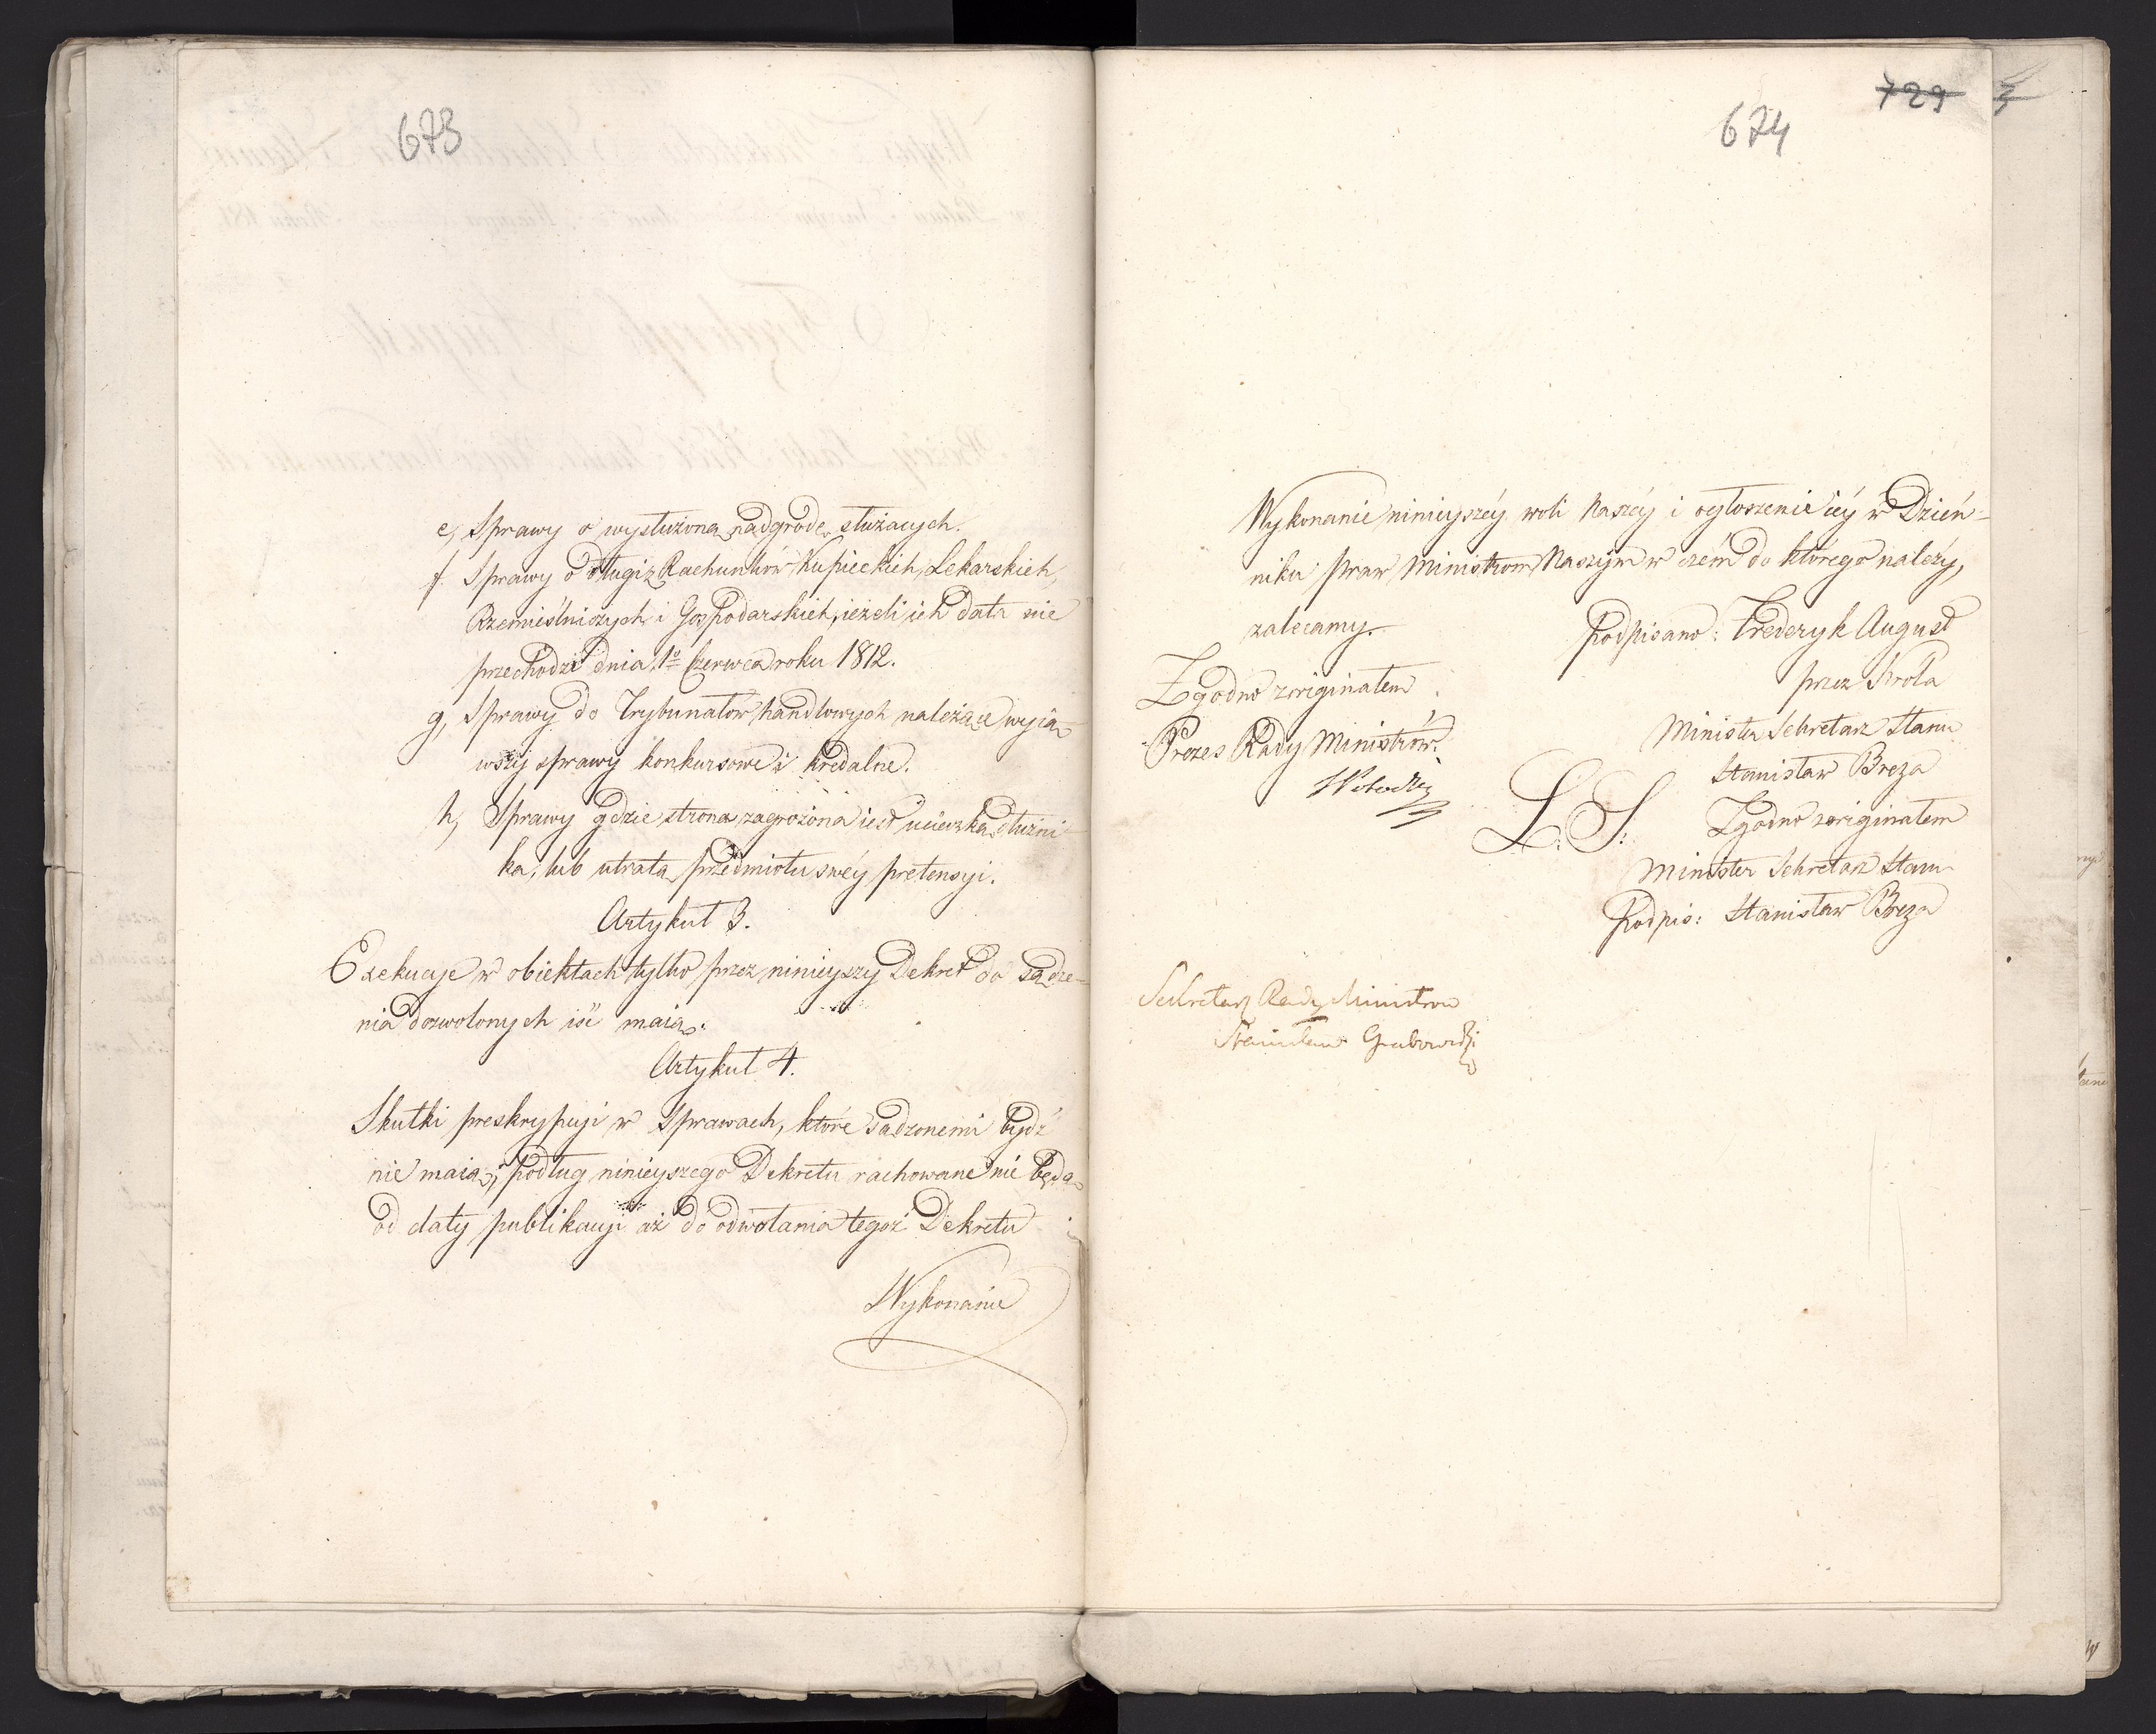 673
e, Sprawy o wysłużoną nadgrodę służących.
f. Sprawy o długi z Rachunków Kupieckich, Lekarskich,
Rzemieślniczych i Gospodarskich, ieżeli ich data nie
przechodzi dnia 1º Czerwca roku 1812.
g, Sprawy do Trybunałów handlowych należące wyią-
wszy sprawy konkursowe i kredalne.
h, Sprawy gdzie strona zagrożona iest ucieczką dłużni-
ka, lub utratą przedmiotu swéy pretensyi.
Artykuł 3.
Exekucye w obiektach tylko przez ninieyszy Dekret do sądze-
nia dozwolonych iść maią.
Artykuł 4.
Skutki preskrypcyi w Sprawach, które sądzonemi bydź
nie maią, podług ninieyszego Dekretu rachowane nie będą
od daty publikacyi aż do odwołania tegoż Dekretu
Wykonanie
729
674
Wykonanie ninieyszéy woli Naszéy i ogłoszenie iéy w Dzień-
niku praw Ministrom Naszym w czém do którego należy,
zalecamy.
Podpisano: Frederyk August
przez Króla
Minister Sekretarz Stanu
Stanisław Breza
L. S.
Zgodno z originałem
Minister Sekretarz Stanu
Podpis: Stanisław Breza
Zgodno z originałem
Prezes Rady Ministrów.
Sekretarz Rady Ministrów
Stanisław Grabowski